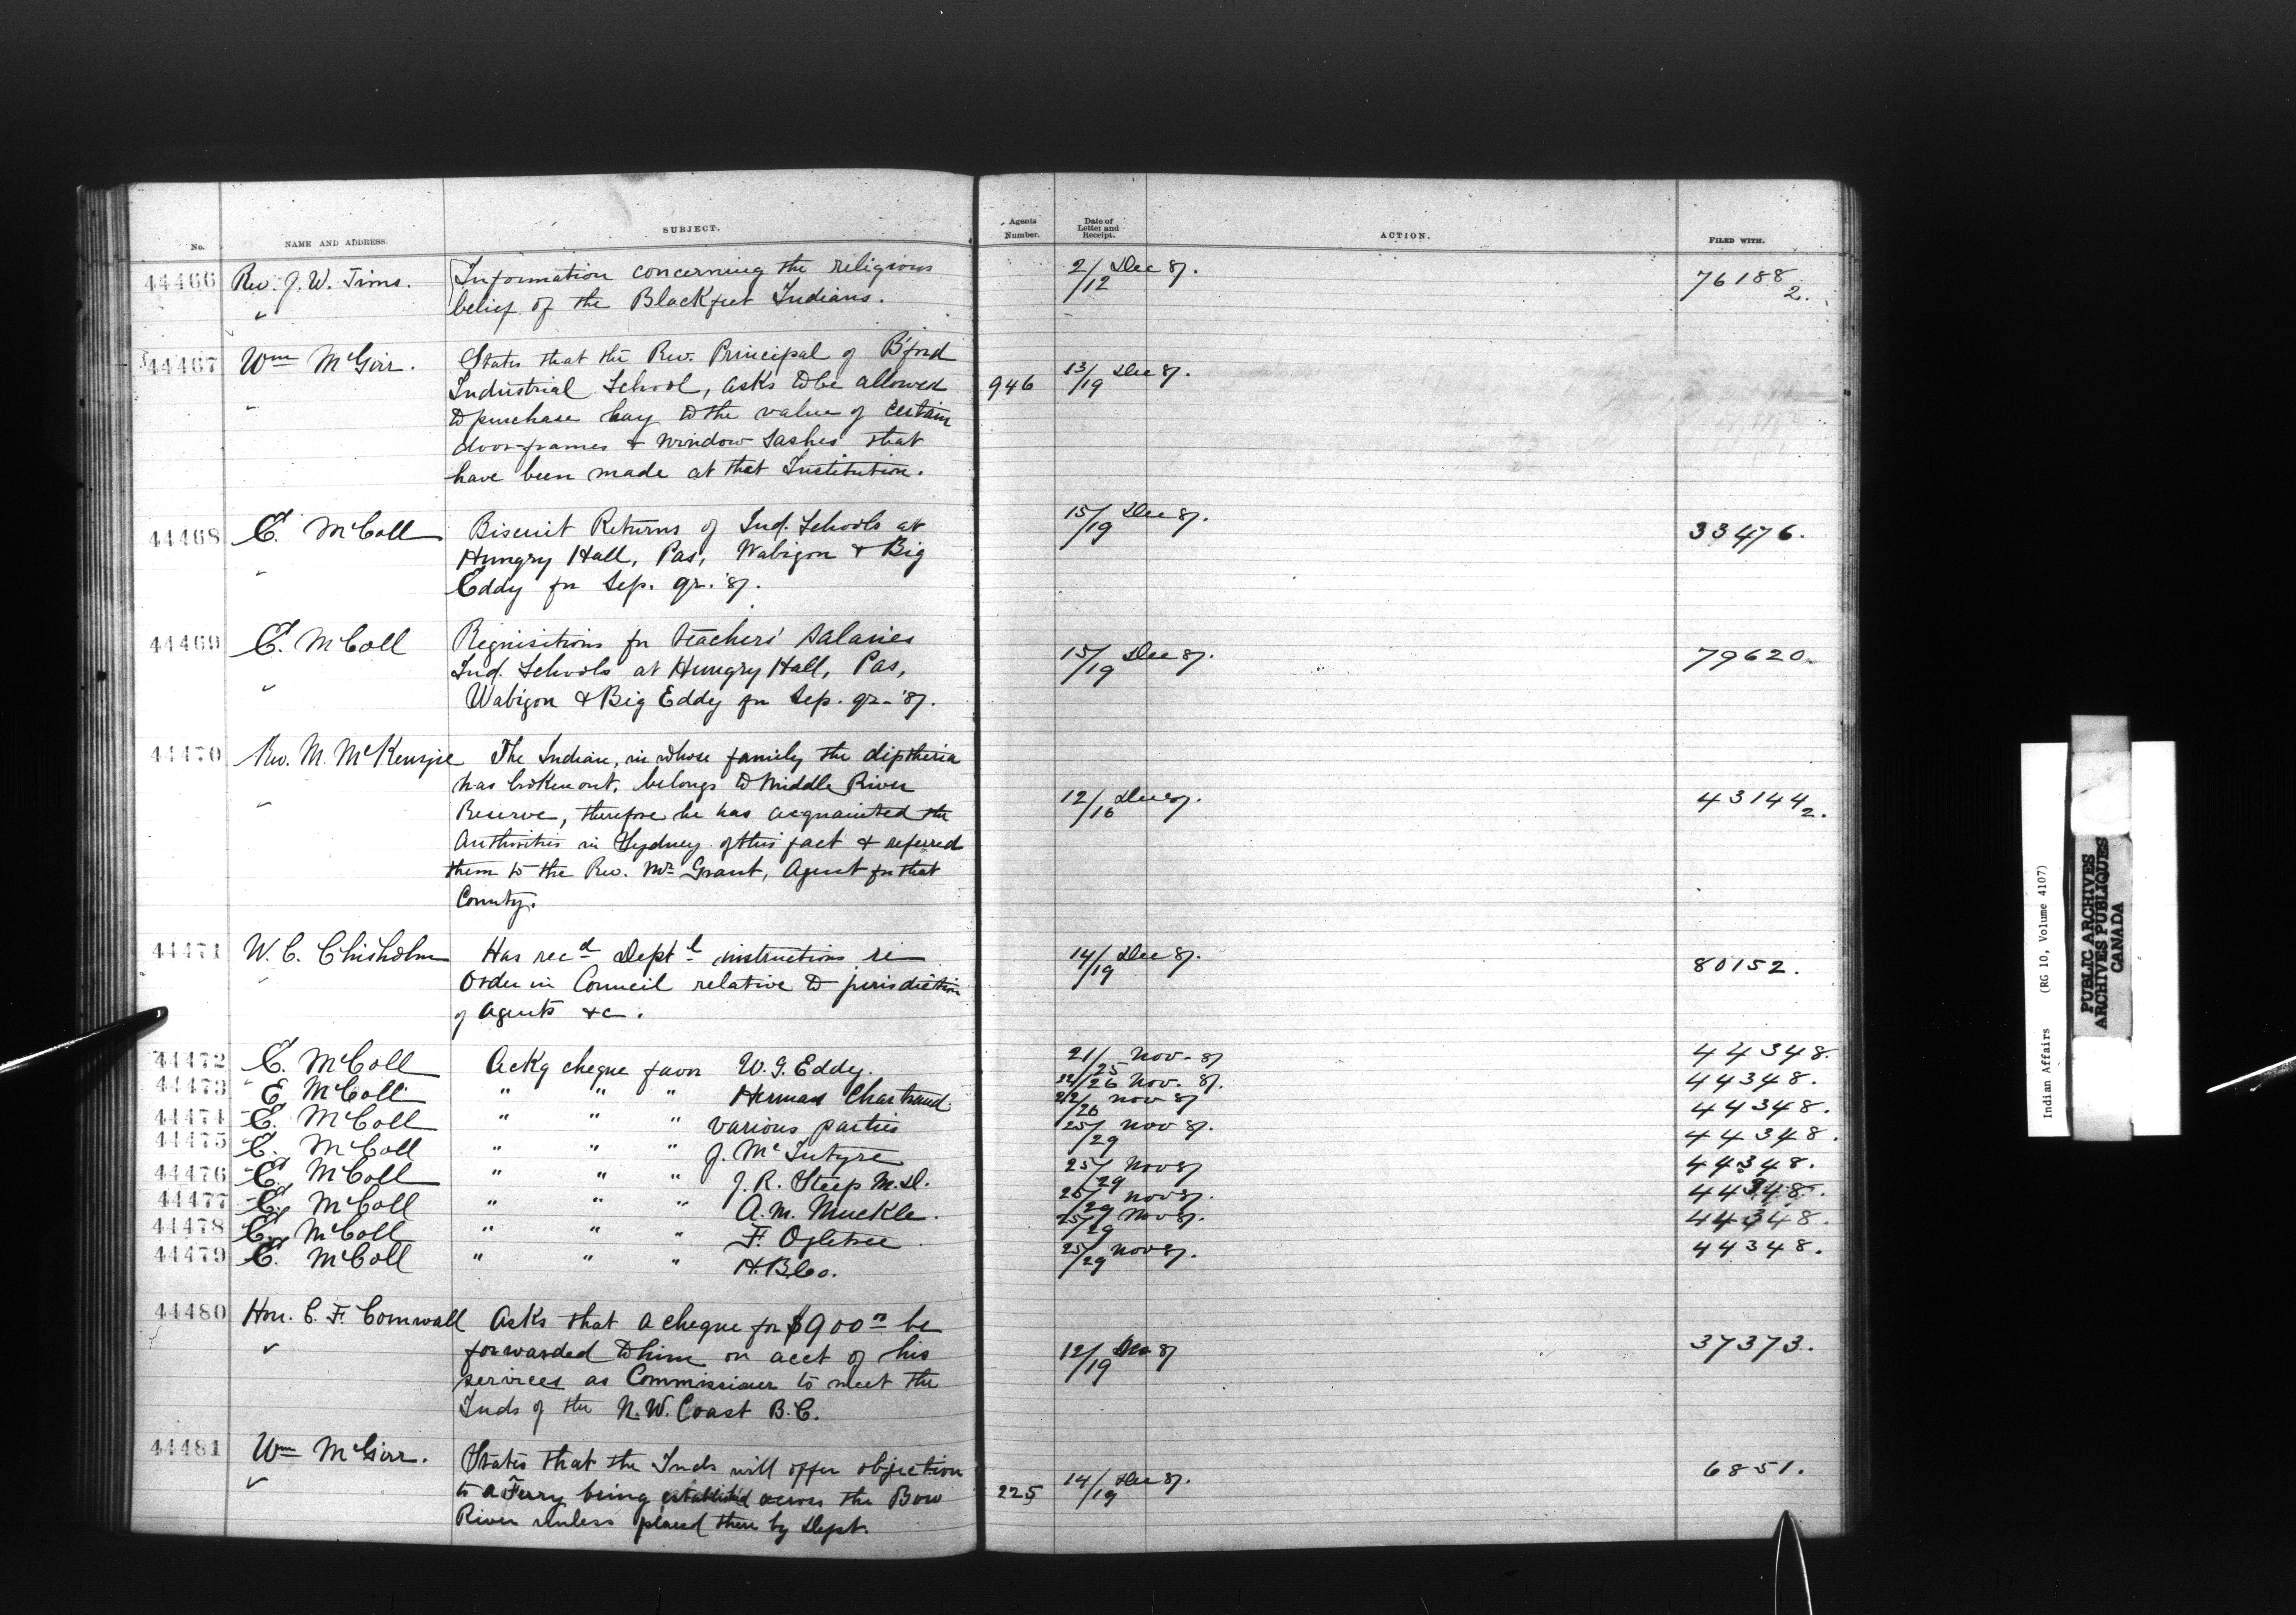 No. NAME AND ADDRESS. SUBJECT. Agents Number. Date of Letter and Receipt. ACTION. FILED WITH.
44466 Rev. J. W. Tims. Information concerning the religious 2/12 Dec 87. 76188 2.
belief of the Blackfeet Indians.
44467 Wm McGirr. States that the Rev. Principal of B'ford
Industrial School, asks to be allowed 946 13/19 Dec 87.
to purchase hay to the value of certain
door-frames & window sashes that
have been made at that Institution.
44468 E. McColl Biscuit Returns of Ind. Schools at 15/19 Dec 87. 33476.
Hungry Hall, Pas, Wabigon & Big
Eddy for Sep. qr. '87.
44469 E. McColl Requisitions for teachers' salaries
Ind. Schools at Hungry Hall, Pas, 15/19 Dec 87. 79620.
Wabigon & Big Eddy for Sep. qr. '87.
44470 Rev. M. McKenzie The Indian, in whose family the diptheria
has broken out, belongs to Middle River
Reserve, therefore he has acquainted the 12/16 Dec 87. 43144 2.
Authorities in Sydney of this fact & referred
them to the Rev. Mr Grant, Agent for that
County.
44471 W. C. Chisholm Has recd Deptl instructions re 14/19 Dec 87. 80152.
Order in Council relative to jurisdiction
of Agents &c.
44472 E. McColl Ackg cheque favor W. G. Eddy. 21/25 Nov. 87 44348.
44473 E McColl " " " Herman Chartrand. 22/26 Nov. 87. 44348.
44474 E. McColl " " " various parties 22/26 Nov 87 44348.
44475 E. McColl " " " J. McIntyre 25/29 Nov 87. 44348.
44476 E. McColl " " " J. R. Steep M.D. 25/29 Nov 87 44348.
44477 E. McColl " " " A. M. Muckle. 25/29 Nov 87. 44348.
44478 E. McColl " " " F. Ogletree. 25/29 Nov 87. 44348.
44479 E. McColl " " " H.B.Co. 25/29 Nov 87. 44348.
44480 Hon. C. F. Cornwall Asks that a cheque for $900 be
forwarded to him on acct of his 12/19 Dec 87 37373.
services as Commissioner to meet the
Inds of the N. W. Coast B. C.
44481 Wm McGirr. States that the Inds will offer objection 6851.
to a Ferry being established across the Bow 225 14/19 Dec 87.
River unless placed there by Dept.
Indian Affairs (RG 10, Volume 4107)
PUBLIC ARCHIVES
ARCHIVES PUBLIQUES
CANADA